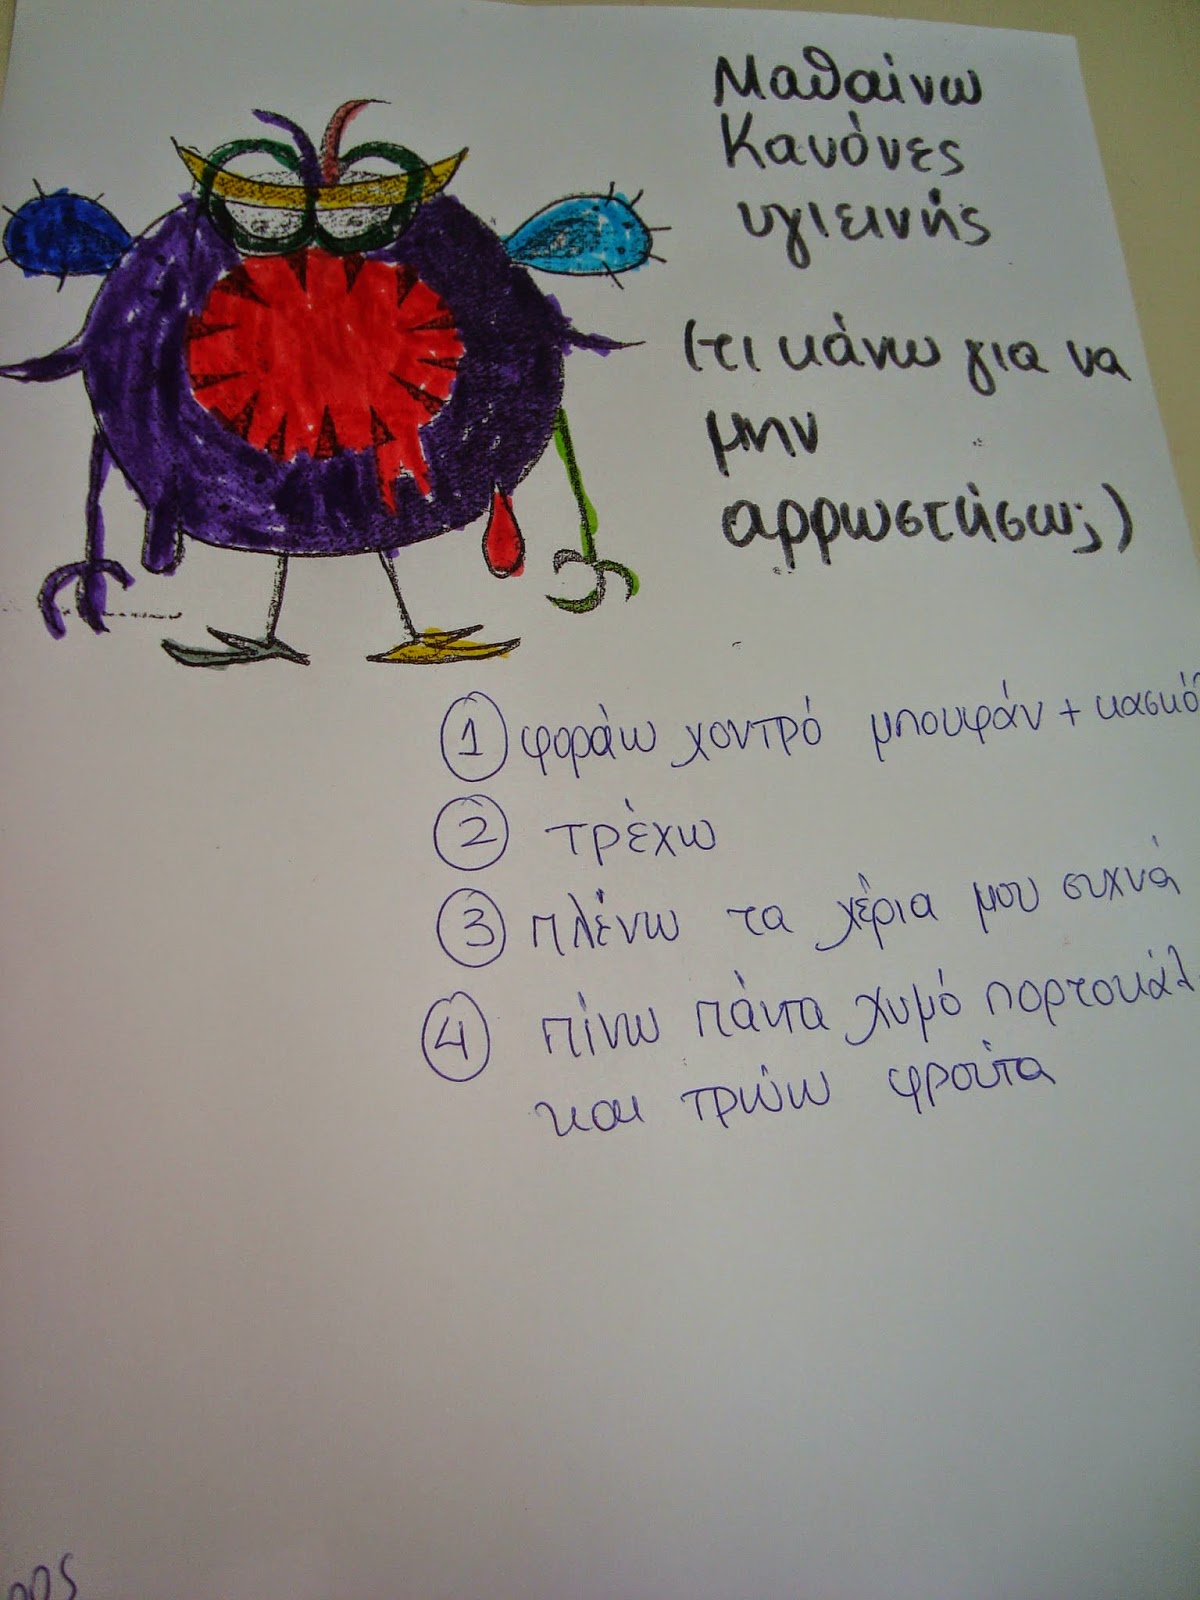 Μαθαίνω
Κανόνες
υγιεινής
(τι κάνω για να
μην
αρρωστήσω;)
① φοράω χοντρό μπουφάν +
② τρέχω
③ πλένω τα χέρια μου συχνά
④ πίνω πάντα χυμό
και τρώω φρούτα